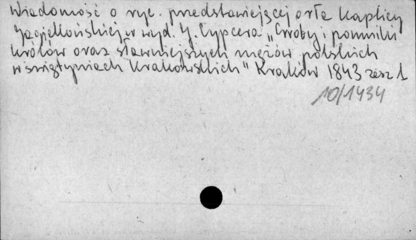 Wiadomość o ryc. przedstawiejącej orła Kaplicy
Jagiellońskiej w wyd. J. Cypcera "Groby i pomniki
królów oraz sławniejszych mężów polskich
w świątyniach Krakowskich" Kraków 1843 zesz 1
10/1434